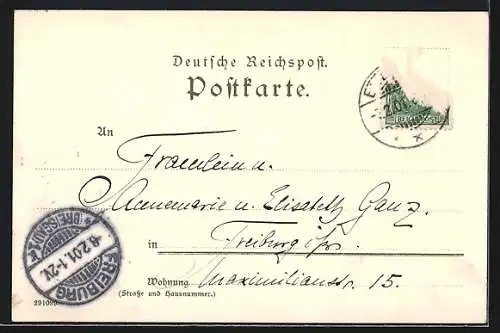 Deutsche Reichspost.
Postkarte.
An
Fraeulein u.
Annemarie u. Elisabeth Ganz.
in Freiburg i/Br.
Wohnung Maximilianstr. 15.
(Straße und Hausnummer.)
FREIBURG
BREISGAU
8.2.01.1-2V.
REICHSPOST